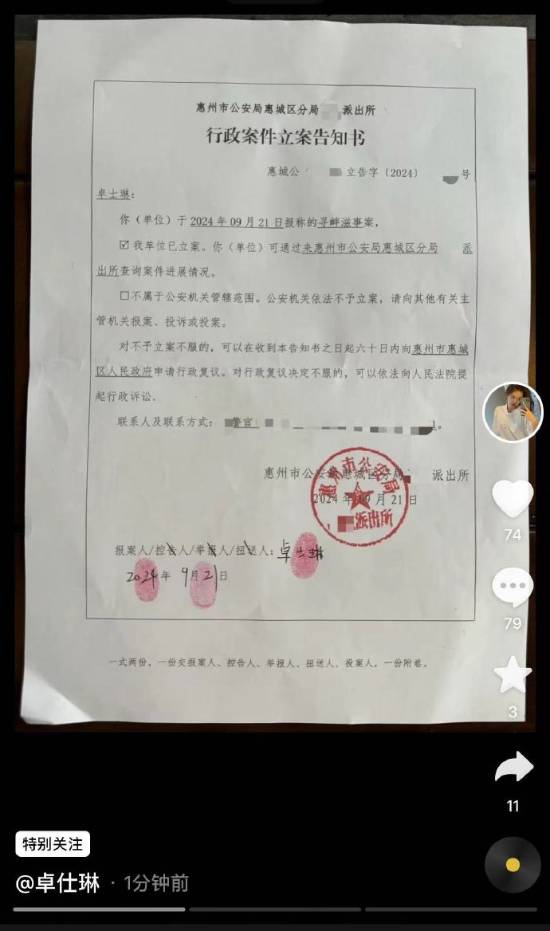 惠州市公安局惠城区分局 派出所
行政案件立案告知书
惠城公 立告字〔2024〕 号
卓士琳:
你(单位)于2024年09月21日报称的寻衅滋事案,
☑我单位已立案。你(单位)可通过来惠州市公安局惠城区分局 派
出所查询案件进展情况。
☐不属于公安机关管辖范围。公安机关依法不予立案,请向其他有关主
管机关报案、投诉或投案。
对不予立案不服的,可以在收到本告知书之日起六十日内向惠州市惠城
区人民政府申请行政复议。对行政复议决定不服的,可以依法向人民法院提
起行政诉讼。
联系人及联系方式: 警官
惠州市公安局惠城区分局 派出所
2024年09月21日
惠州市公安局
派出所
报案人/控告人/举报人/扭送人:卓士琳
2024年 9月21日
一式两份,一份交报案人、控告人、举报人、扭送人、投案人,一份附卷。
74
79
3
11
特别关注
@卓仕琳 · 1分钟前